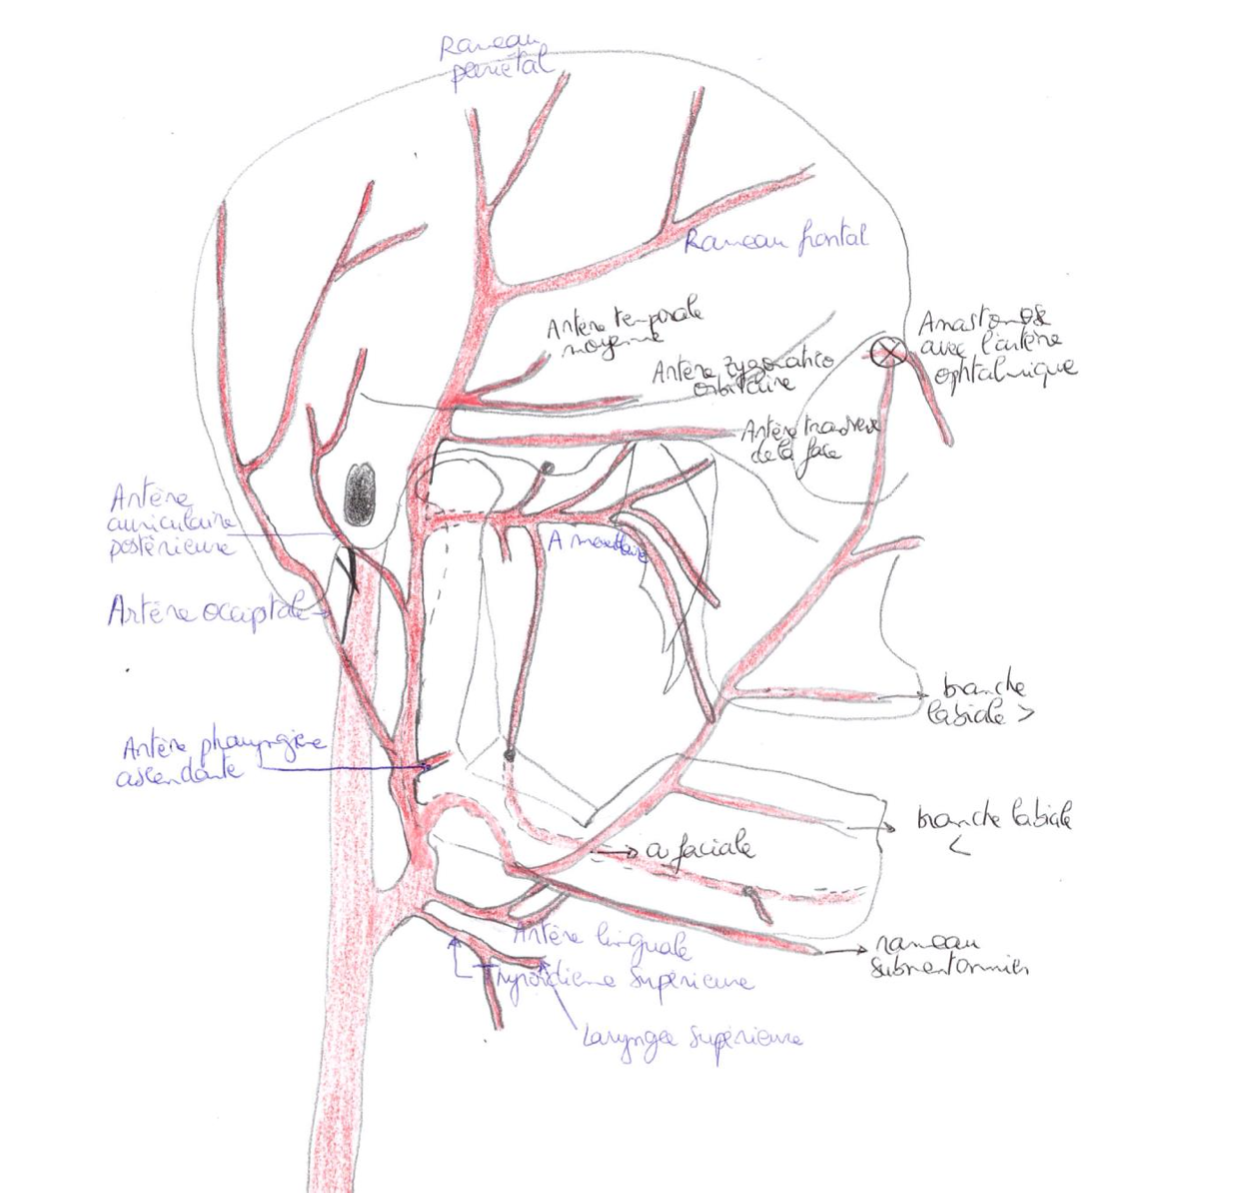 Rameau
pariétal
Rameau frontal
Artère temporale
moyenne
Artère zygomatico
orbitaire
Anastomose
avec l'artère
ophtalmique
Artère transverse
de la face
Artère
auriculaire
postérieure
A maxillaire
Artère occipitale
branche
labiale >
Artère pharyngiée
ascendante
branche labiale
<
a faciale
Artère linguale
rameau
submentonnier
Thyroïdienne Supérieure
Laryngée Supérieure